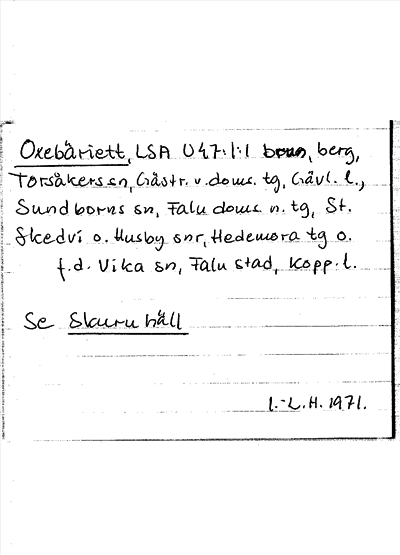 Oxebäriett, LSA U47:1:1 berg,
Torsåkers sn, Gästr. v. doms. tg, Gävl. l.,
Sundborns sn, Falu doms n. tg, St.
Skedvi o. Husby snr, Hedemora tg o.
f.d. Vika sn, Falu stad, Kopp. l.
Se Skuru häll
I.-L.H. 1971.